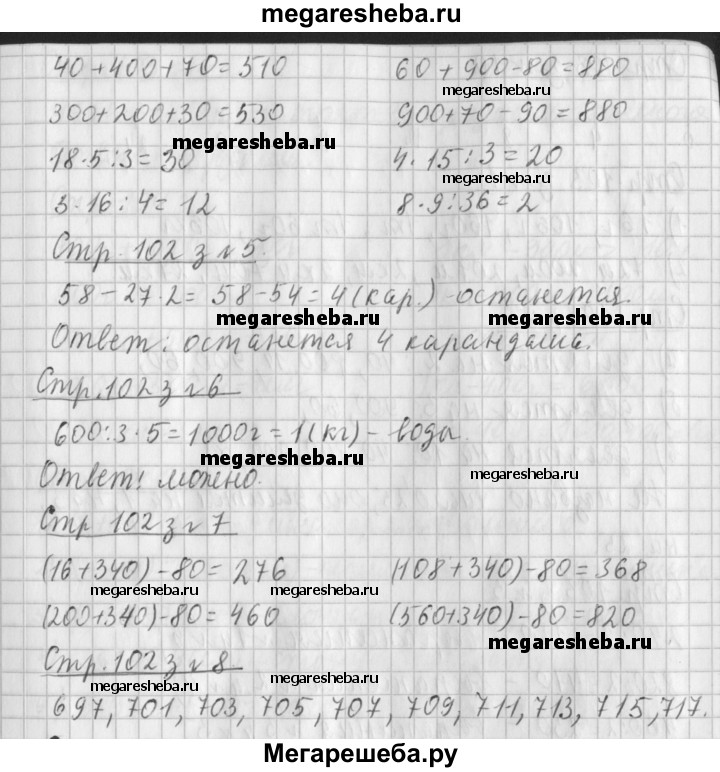 megaresheba.ru
40+400+70=510 60+900-80=880
megaresheba.ru
300+200+30=530 900+70-90=880
megaresheba.ru
18·5:3=30 4·15:3=20
megaresheba.ru
3·16:4=12 8·9:36=2
Стр. 102 з №5.
58-27·2=58-54=4(кар.)-останется.
megaresheba.ru megaresheba.ru
Ответ: останется 4 карандаша.
Стр.102 з №6
600:3·5=1000г=1(кг)-воды.
megaresheba.ru megaresheba.ru
Ответ: можно.
Стр 102 з №7
(16+340)-80=276 (108+340)-80=368
megaresheba.ru megaresheba.ru
(200+340)-80=460 (560+340)-80=820
megaresheba.ru
Стр.102 з №8
megaresheba.ru megaresheba.ru
697, 701, 703, 705, 707, 709, 711, 713, 715, 717.
Мегарешеба.ру